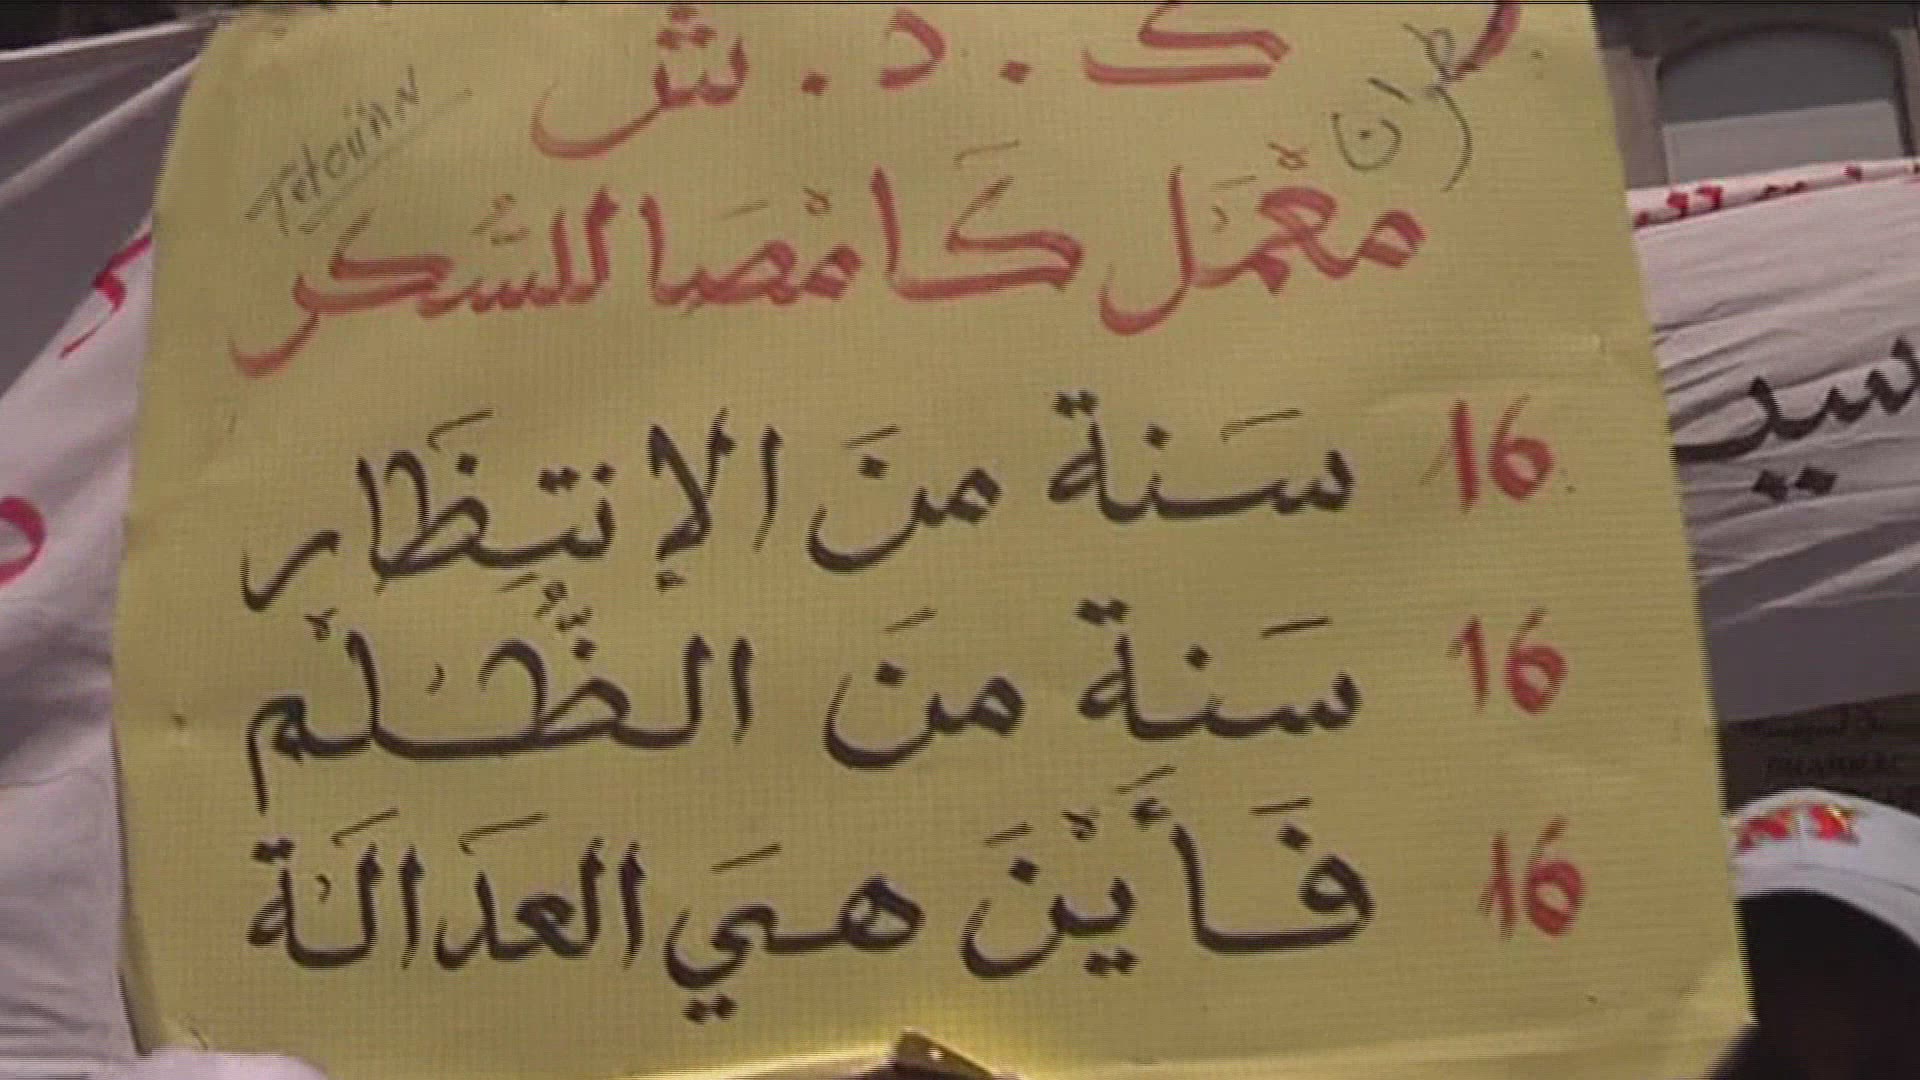 ك . د . ش
تطوان
Tetouan
مَعْمَل كَامْصَا للسُّكر
16 سَنة منَ الإنتِظَار
16 سَنة منَ الظُّلْم
16 فَأَيْنَ هيَ العَدَالَة